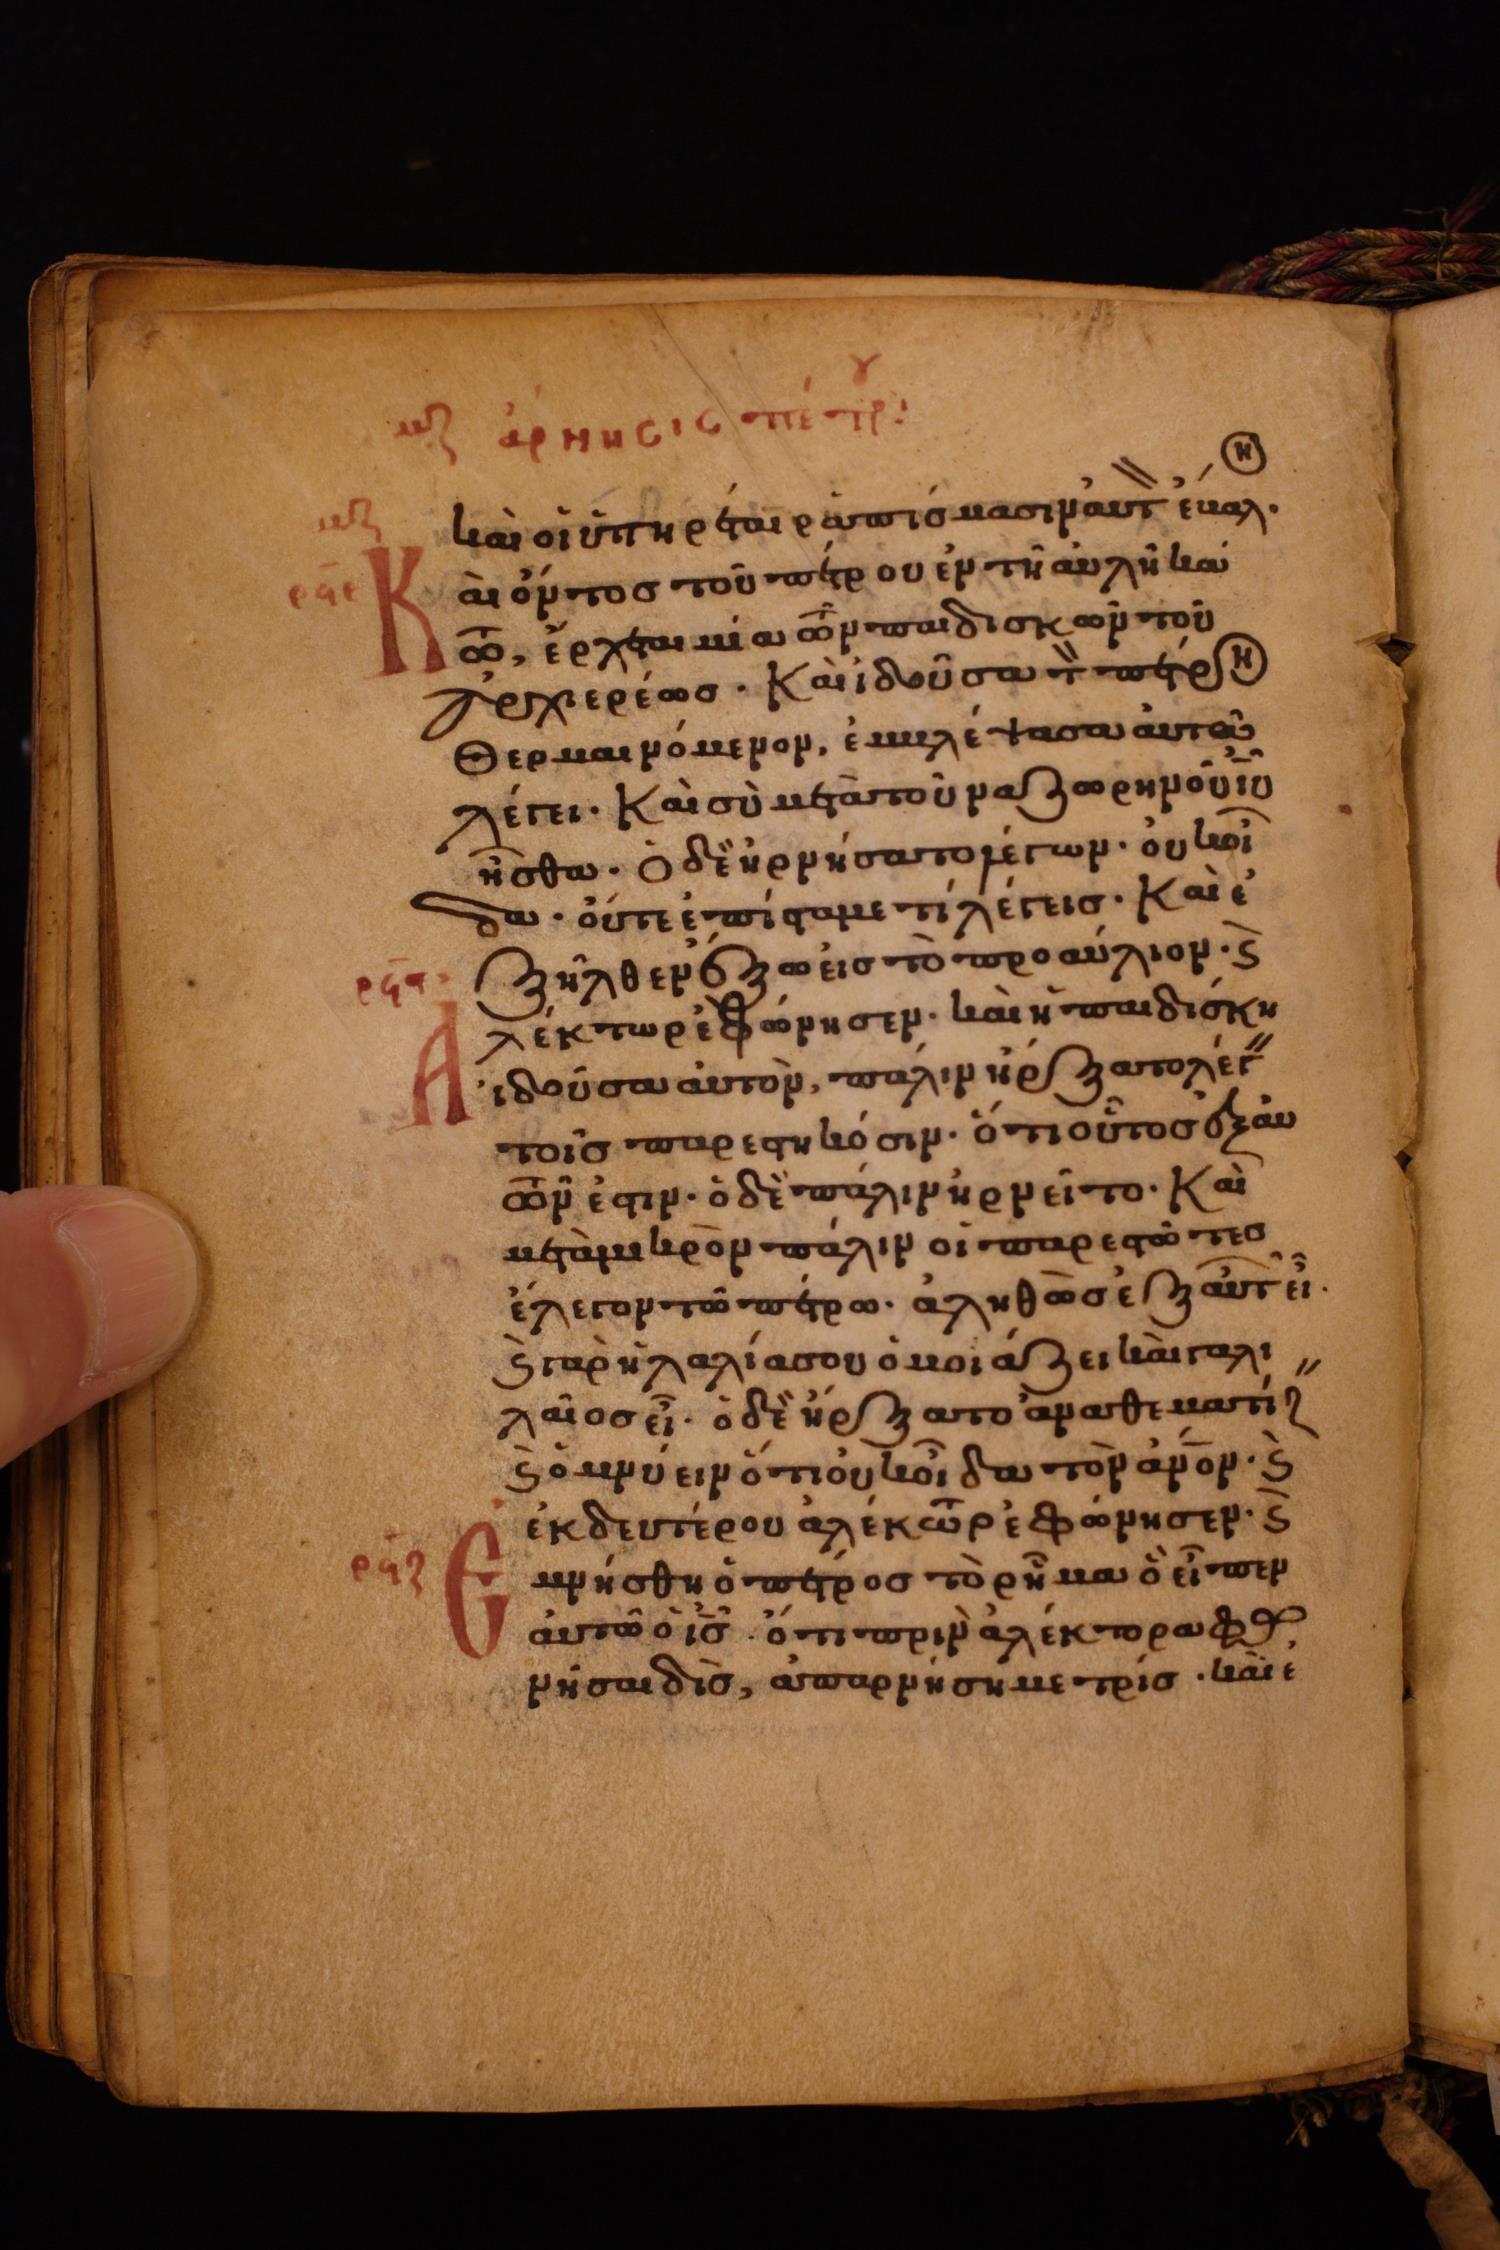 μζ ἄρνησις πέτρου:
μζ καὶ οἱ ὑπηρέται ραπίσμασιν αὐτ ἔβαλ·
ρπε Καὶ ὄντος τοῦ πέτρου ἐν τῆ αὐλῆ κά
τω, ἔρχεται μία τῶν παιδισκῶν τοῦ
ἀρχιερέως · Καὶ ἰδοῦσα τ πέτρ
θερμαινόμενον, ἐμβλέψασα αὐτῶ
λέγει · Καὶ σὺ μετὰ τοῦ ναζωρηνοῦ ἰῦ
ἦσθα · ὁ δὲ ἠρνήσατο λέγων · οὐκ οἶ
δα · οὔτε ἐπίσταμαι τί λέγεις · Καὶ ἐ
ξῆλθεν ἔξω εἰς τὸ προαύλιον · ϗ
Ἀλέκτωρ ἐφώνησεν · καὶ ἡ παιδίσκη
ἰδοῦσα αὐτὸν, πάλιν ἤρξατο λέγ
τοῖς παρεστηκόσιν · ὅτι οὗτος ἐξ αὐ
τῶν ἐστιν · ὁ δὲ πάλιν ἠρνεῖτο · Καὶ
μετὰ μικρὸν πάλιν οἱ παρεστῶτες
ἔλεγον τῶ πέτρω · ἀληθῶς ἐξ αὐτ εἶ ·
ϗ γὰρ ἡ λαλία σου ὁμοιάζει καὶ γαλι
λαῖος εἶ · ὁ δὲ ἤρξατο ἀναθεματίζ
ϗ ὀμνύειν ὅτι οὐκ οἶδα τὸν ἀνον · ϗ
ἐκ δευτέρου ἀλέκτωρ ἐφώνησεν · ϗ
Ἐμνήσθη ὁ πέτρος τὸ ρῆμα ὃ εἶπεν
αὐτῶ ὁ ἰς · ὅτι πρὶν ἀλέκτορα φω
νῆσαι δὶς, ἀπαρνήση με τρίς · καὶ ἐ